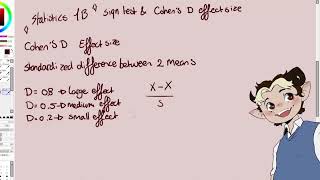 Statistics 1B sign test & Cohen's D effect size
Cohen's D Effect size
standardized difference between 2 means
D = 0.8 → large effect
D = 0.5 → medium effect
D = 0.2 → small effect
X - X
S